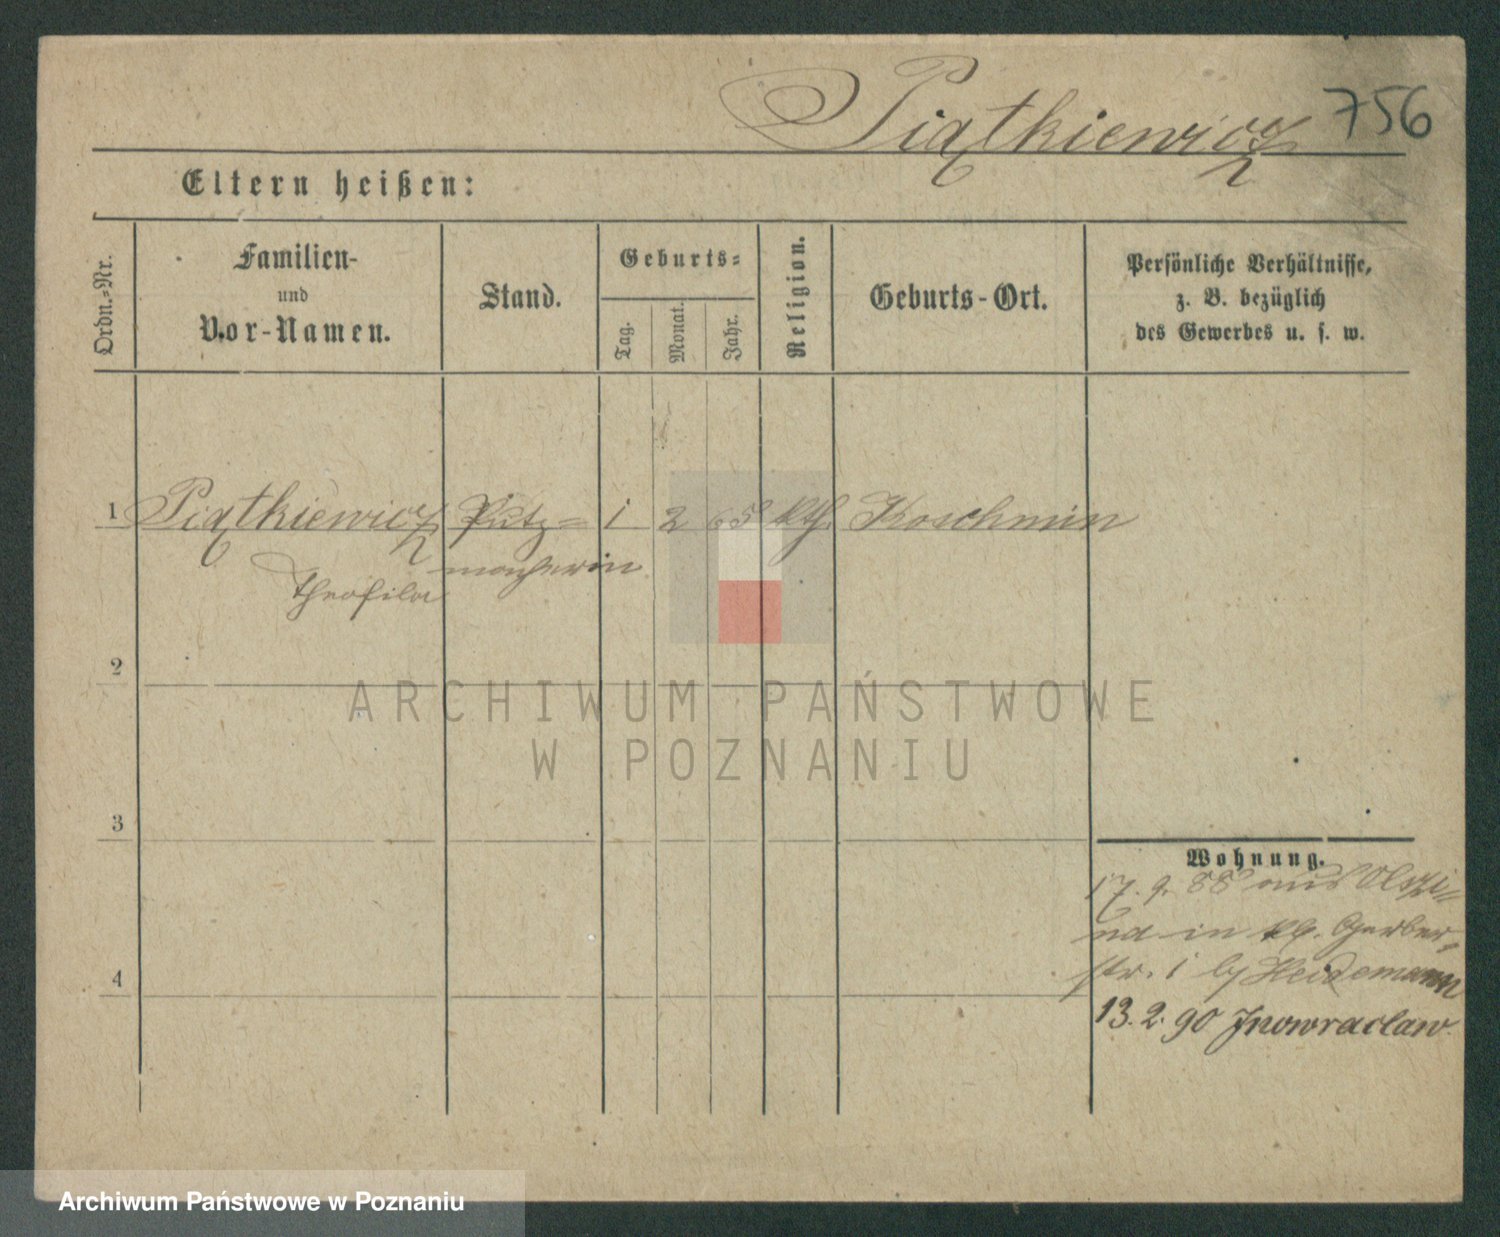 Piątkiewicz 756
Eltern heißen:
Ordn.-Nr.
Familien-
und
Vor-Namen.
Stand.
Geburts-
Tag.
Monat.
Jahr.
Religion.
Geburts-Ort.
Persönliche Verhältnisse,
z. B. bezüglich
des Gewerbes u. s. w.
1 Piątkiewicz Putz= 1 2 65 kth. Koschmin
Theofila macherin
2
ARCHIWUM PAŃSTWOWE
W POZNANIU
3
Wohnung.
17. 9. 88 aus Olszi=
na in Kl. Gerber=
str. 1 by Heidemann
4
13. 2. 90 Inowraclaw
Archiwum Państwowe w Poznaniu